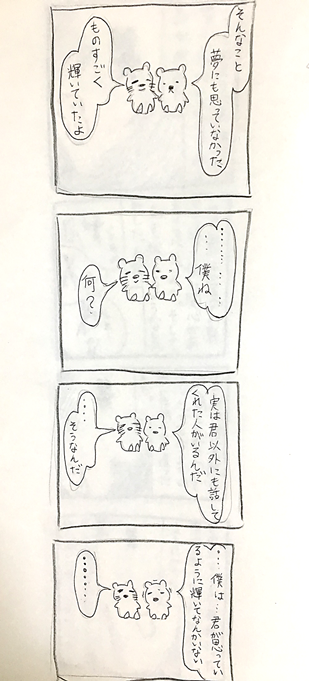 そんなこと
夢にも思っていなかった
ものすごく
輝いていたよ
………
…僕ね
何？
実は君以外にも話して
くれた人がいるんだ
・・・・
そうなんだ
…僕は…君が思ってい
るように輝いてなんかいない
……